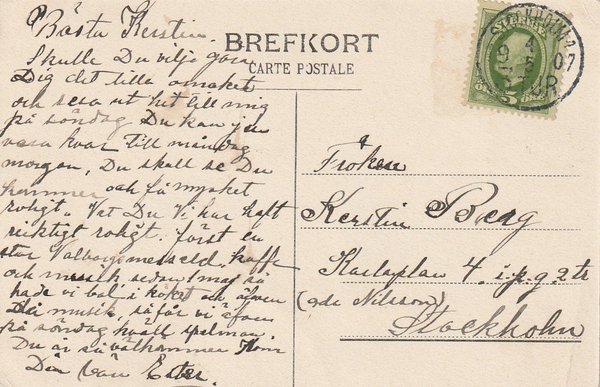 Bästa Kerstin.
Skulle Du vilja göra
Dig det lilla omaket
och resa ut hit till mig
på söndag Du kan ju
vara kvar till måndag
morgon, Du skall se Du
kommer och få mycket
roligt. Vet Du Vi har haft
riktigt roligt. först en
stor Valborgsmesseld, kaffe
och musik, sedan
hade vi bal i köket och äfven
musik, så får vi äfven
på söndag kväll spelman.
Du är så välkommen
Din Vän Ester.
BREFKORT
CARTE POSTALE
SVERIGE
5
07
Fröken
Kerstin Berg
Karlaplan 4. i.p.g. 2 tr
(ade Nilsson)
Stockholm